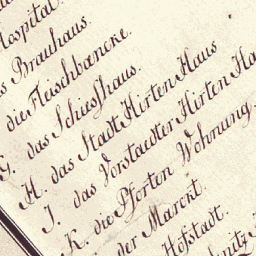 Hospital.
Brauhaus.
die Fleischbæncke.
G. das Schiesshaus.
H. das Stadt Hirten Haus
I. das Vorstaedter Hirten
K. die Pforten Wohnung.
der Marckt.
Hofstadt.